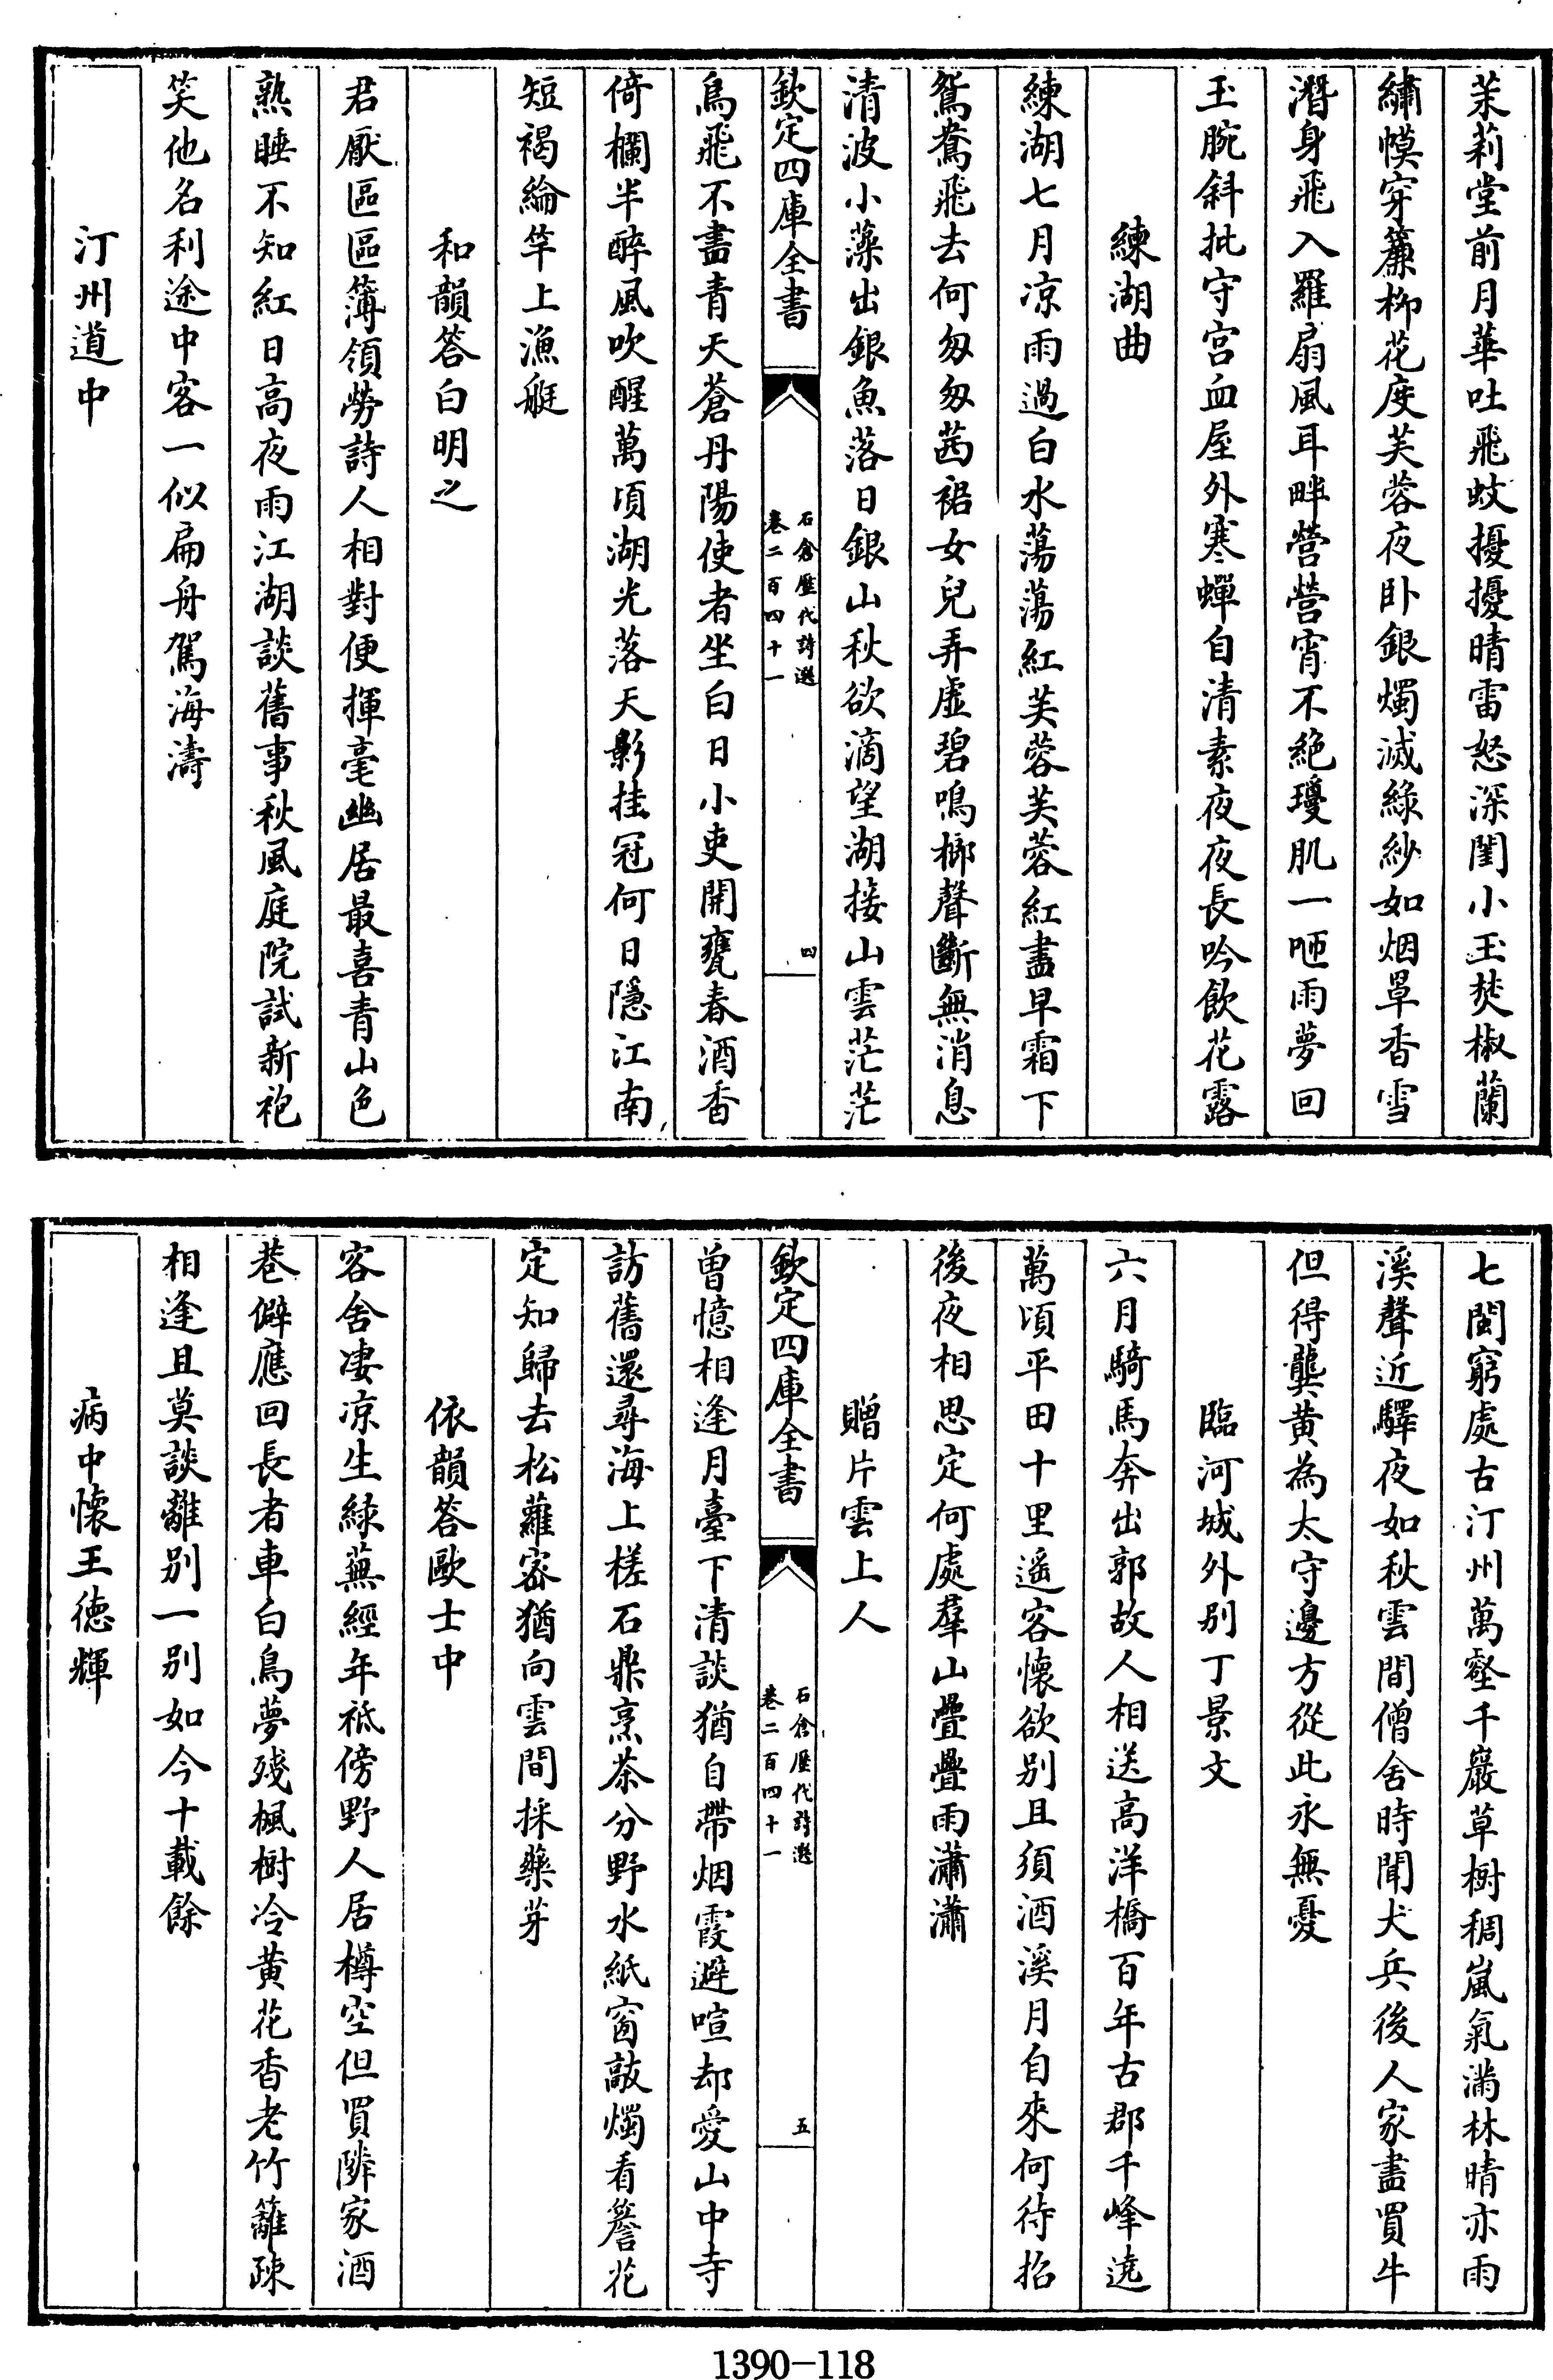 茉莉堂前月華吐飛蚊擾擾晴雷怒深閨小玉焚椒蘭
繡幙穿簾柳花度芙蓉夜卧銀燭滅綠紗如烟罩香雪
潛身飛入羅扇風耳畔營營宵不絶瓊肌一咂雨夢回
玉腕斜批守宫血屋外寒蟬自清素夜夜長吟飲花露
練湖曲
練湖七月凉雨過白水蕩蕩紅芙蓉芙蓉紅盡早霜下
鴛鴦飛去何匆匆茜裙女兒弄虛碧鳴榔聲斷無消息
清波小藻出銀魚落日銀山秋欲滴望湖接山雲茫茫
欽定四庫全書
石倉歷代詩選
卷二百四十一
四
鳥飛不盡青天蒼丹陽使者坐白日小吏開甕春酒香
倚欄半醉風吹醒萬頃湖光落天影挂冠何日隱江南
短褐綸竿上漁艇
和韻答白明之
君厭區區簿領勞詩人相對便揮毫幽居最喜青山色
熟睡不知紅日高夜雨江湖談舊事秋風庭院試新袍
笑他名利途中客一似扁舟駕海濤
汀州道中
七閩窮處古汀州萬壑千巖草樹稠嵐氣滿林晴亦雨
溪聲近驛夜如秋雲間僧舍時聞犬兵後人家盡買牛
但得龔黃為太守邊方從此永無憂
臨河城外别丁景文
六月騎馬奔出郭故人相送高洋橋百年古郡千峰遶
萬頃平田十里遥客懷欲别且須酒溪月自來何待招
後夜相思定何處羣山疊疊雨瀟瀟
贈片雲上人
欽定四庫全書
石倉歷代詩選
卷二百四十一
五
曾憶相逢月臺下清談猶自帶烟霞避喧却愛山中寺
訪舊還尋海上槎石鼎烹茶分野水紙窗敲燭看簷花
定知歸去松蘿密猶向雲間採藥芽
依韻答歐士中
客舍凄凉生綠蕪經年祗傍野人居樽空但買隣家酒
巷僻應回長者車白鳥夢殘楓樹冷黃花香老竹籬疎
相逢且莫談離别一别如今十載餘
病中懷王德輝
1390-118